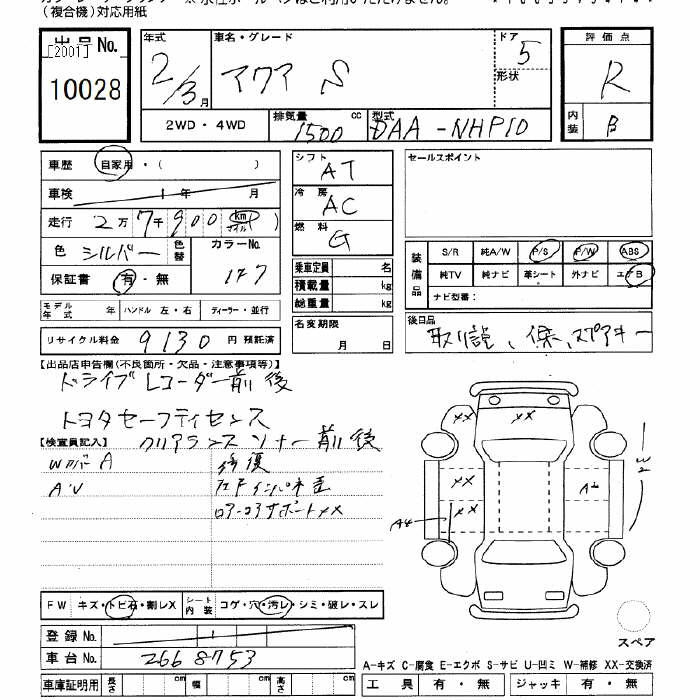 (複合機)対応用紙
出品No. [2001] 10028
年式 2/3月
車名・グレード アクア S
ドア 5
形状
評価点 R
内装 B
2WD・4WD
排気量 1500 cc
型式 DAA-NHP10
車歴 自家用・( )
車検 1年 月
走行 2万7千900 km マイル
色 シルバー
色替
カラーNo. 1F7
保証書 有・無
シフト AT
冷房 AC
燃料 G
乗車定員 名
積載量 kg
総重量 kg
セールスポイント
装備品 S/R 純A/W P/S P/W ABS
純TV 純ナビ 革シート 外ナビ エアB
ナビ型番:
モデル年式 年 ハンドル 左・右 ディーラー・並行
名変期限 月 日
後日品
取説、保、スペアキー
リサイクル料金 9130 円 預託済
【出品店申告欄(不良箇所・欠品・注意事項等)】
ドライブレコーダー前後
トヨタセーフティセンス
クリアランスソナー前後
【検査員記入】
Wカバー A
A・U
修復
ロアーコアサポートXX
XX XX
XX
XX
A4
FW キズ・トビ石・割レX シート内装 コゲ・穴・汚レ・シミ・破レ・スレ
登録No. 1
車台No. 2668753
スペア
A-キズ C-腐食 E-エクボ S-サビ U-凹ミ W-補修 XX-交換済
車庫証明用 長さ cm 幅 cm 高さ cm
工具 有・無 ジャッキ 有・無